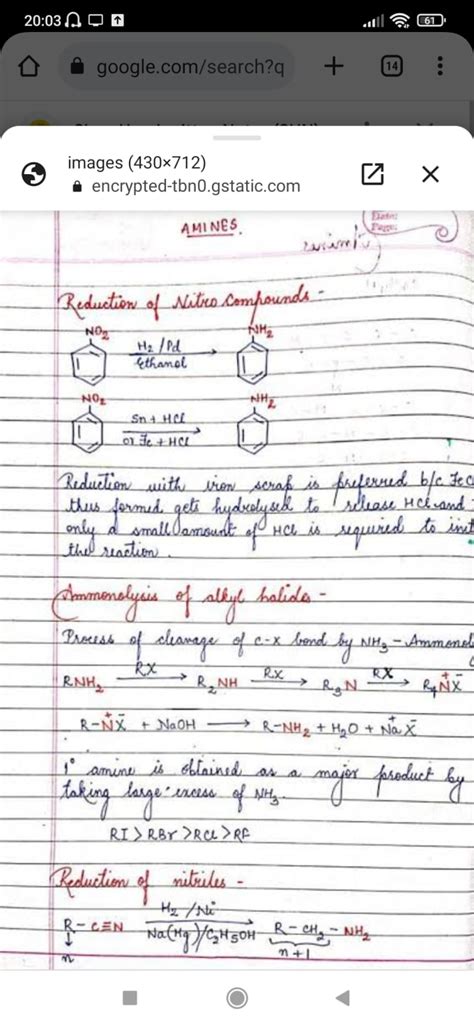 20:03
61
google.com/search?q
14
images (430×712)
encrypted-tbn0.gstatic.com
AMINES.
Date:
Page:
Reduction of Nitro Compounds -
NO₂ NH₂
H₂ /Pd
Ethanol
NO₂ NH₂
Sn + HCl
or Fe + HCl
Reduction with iron scrap is preferred b/c FeC
thus formed gets hydrolysed to release HCl and
only a small amount of HCl is required to init
the reaction.
Ammonolysis of alkyl halides -
Process of cleavage of C-X bond by NH₃ - Ammonol
RNH₂ RX → R₂NH RX → R₃N RX → R₄N⁺X⁻
R-N⁺X⁻ + NaOH → R-NH₂ + H₂O + Na⁺X⁻
1° amine is obtained as a major product by
taking large excess of NH₃.
RI > RBr > RCl > RF
Reduction of nitriles -
H₂ /Ni
R-C≡N → R-CH₂-NH₂
Na(Hg)/C₂H₅OH
n n+1